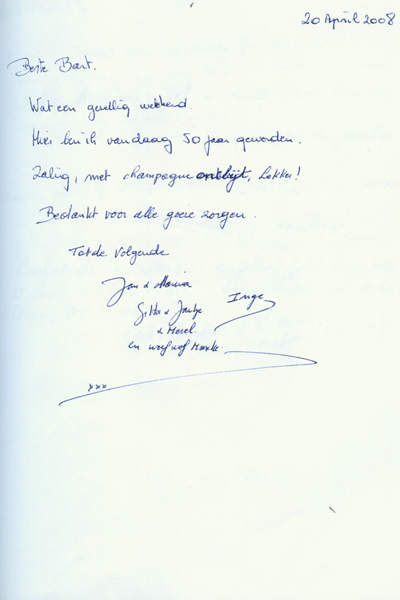 20 April 2008
Beste Bart.
Wat een gezellig weekend.
Hier ben ik vandaag 50 jaar geworden.
Zalig, met champagne ontbijt, lekker!
Bedankt voor alle goeie zorgen.
Tot de volgende
Jan &
Inge
Gitta & Jantje
& Merel
en woef woef
xxx